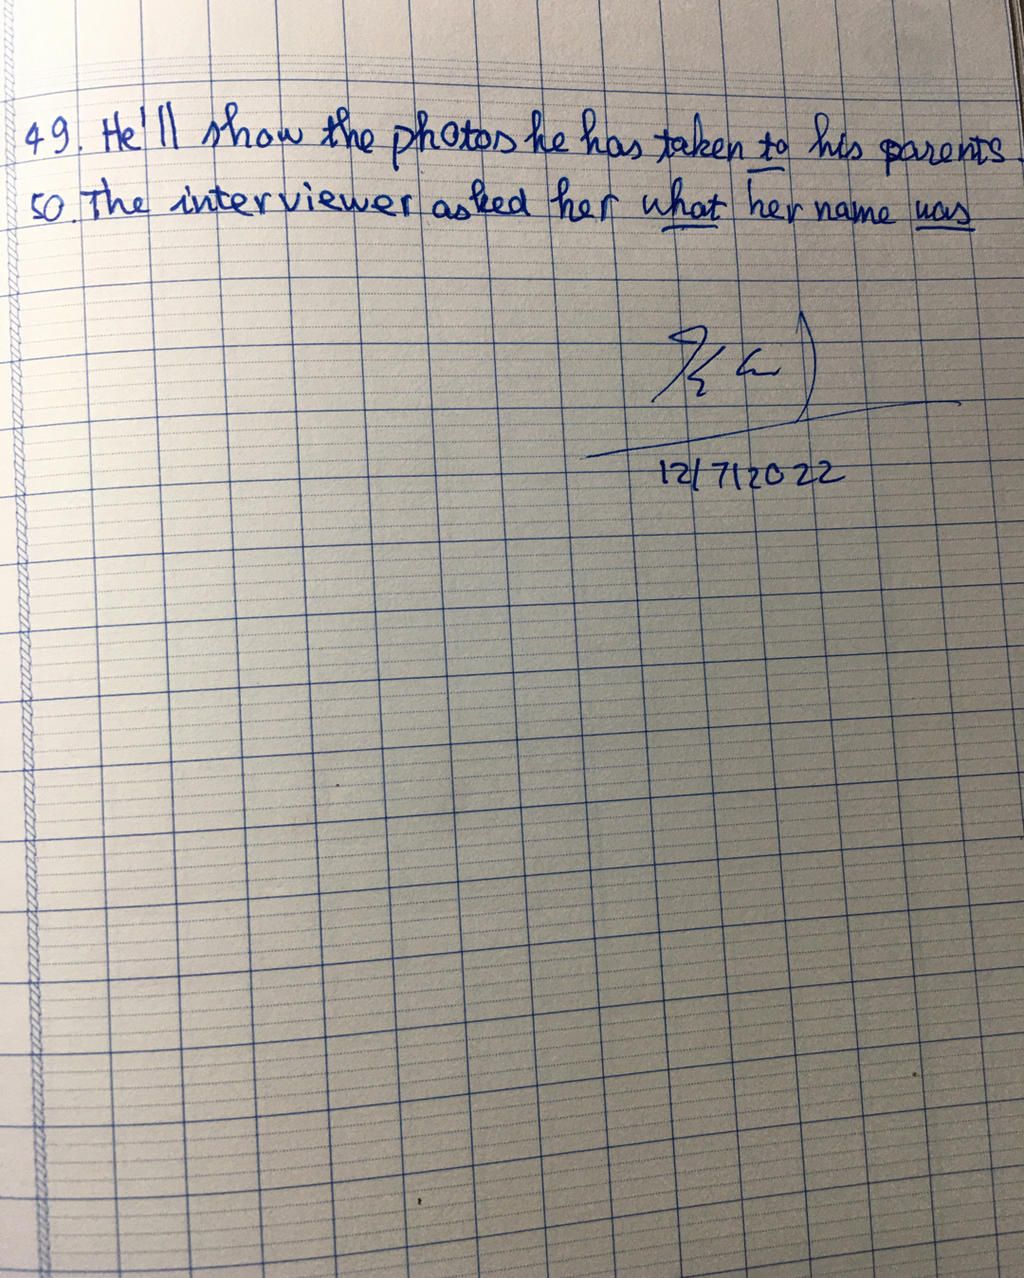 49. He'll show the photos he has taken to his parents.
50. The interviewer asked her what her name was
12/7/2022